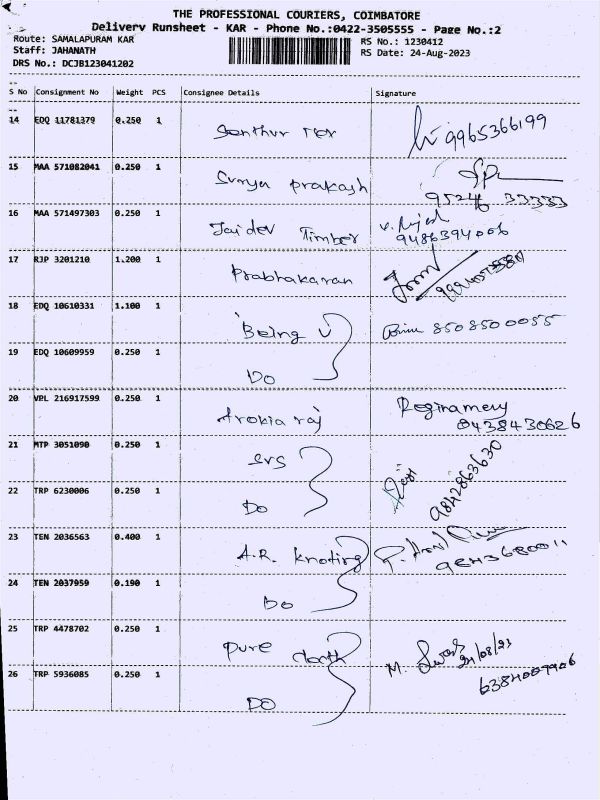 THE PROFESSIONAL COURIERS, COIMBATORE
Delivery Runsheet - KAR - Phone No.:0422-3505555 - Page No.:2
Route: SAMALAPURAM KAR
RS No.: 1230412
Staff: JAHANATH
RS Date: 24-Aug-2023
DRS No.: DCJB123041202
S No Consignment No Weight PCS Consignee Details Signature
14 EDQ 11781379 0.250 1 Senthur Tex 9965366199
15 MAA 571082041 0.250 1 Surya prakash 95246 33333
16 MAA 571497303 0.250 1 Jai dev Timber 9486394006
17 RJP 3201210 1.200 1 Prabhakaran
18 EDQ 10610331 1.100 1 Being U 8508500055
19 EDQ 10609959 0.250 1 Do
20 VPL 216917599 0.250 1 Arokia raj Reginamery
8438430626
21 MTP 3051090 0.250 1 SVS 9842863630
22 TRP 6230006 0.250 1 Do
23 TEN 2036563 0.400 1 A.R. knoting 9843680011
24 TEN 2037959 0.190 1 Do
25 TRP 4478702 0.250 1 Pure cloth M. 24/08/23
6384007906
26 TRP 5936085 0.250 1 DO